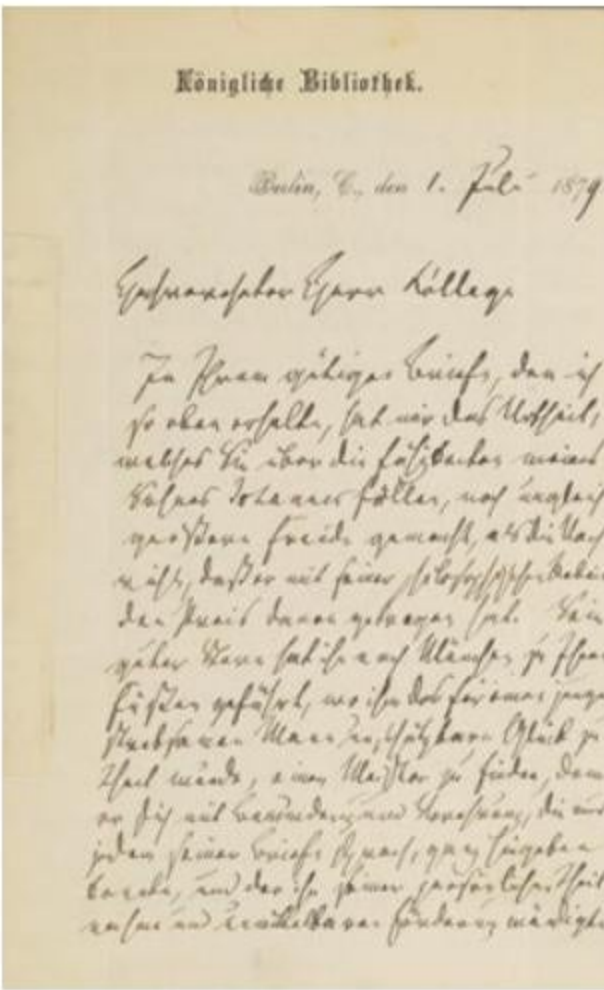 Königliche Bibliothek.
Berlin, C., den 1. Juli 1879
Hochverehrter Herr Kollege
In Ihrem gütigen Briefe, den ich
so eben erhalte, hat mir das Urtheil,
welches Sie über die Fähigkeiten meines
Sohnes Johannes fällen, noch ungleich
größere Freude gemacht, als die Nach
richt, daß er mit seiner philosophischen Arbeit
den Preis davon getragen hat. Sein
guter Stern hat ihn nach München zu Ihren
Füßen geführt, wo ihm das für einen jungen
strebsamen Mann unschätzbare Glück zu
Theil wurde, einen Meister zu finden, dem
er sich mit Bewunderung und Verehrung, die aus
jedem seiner Briefe sprach, ganz hingeben
konnte, und der ihn seiner persönlichen Theil
nahme und unmittelbaren Förderung würdigte